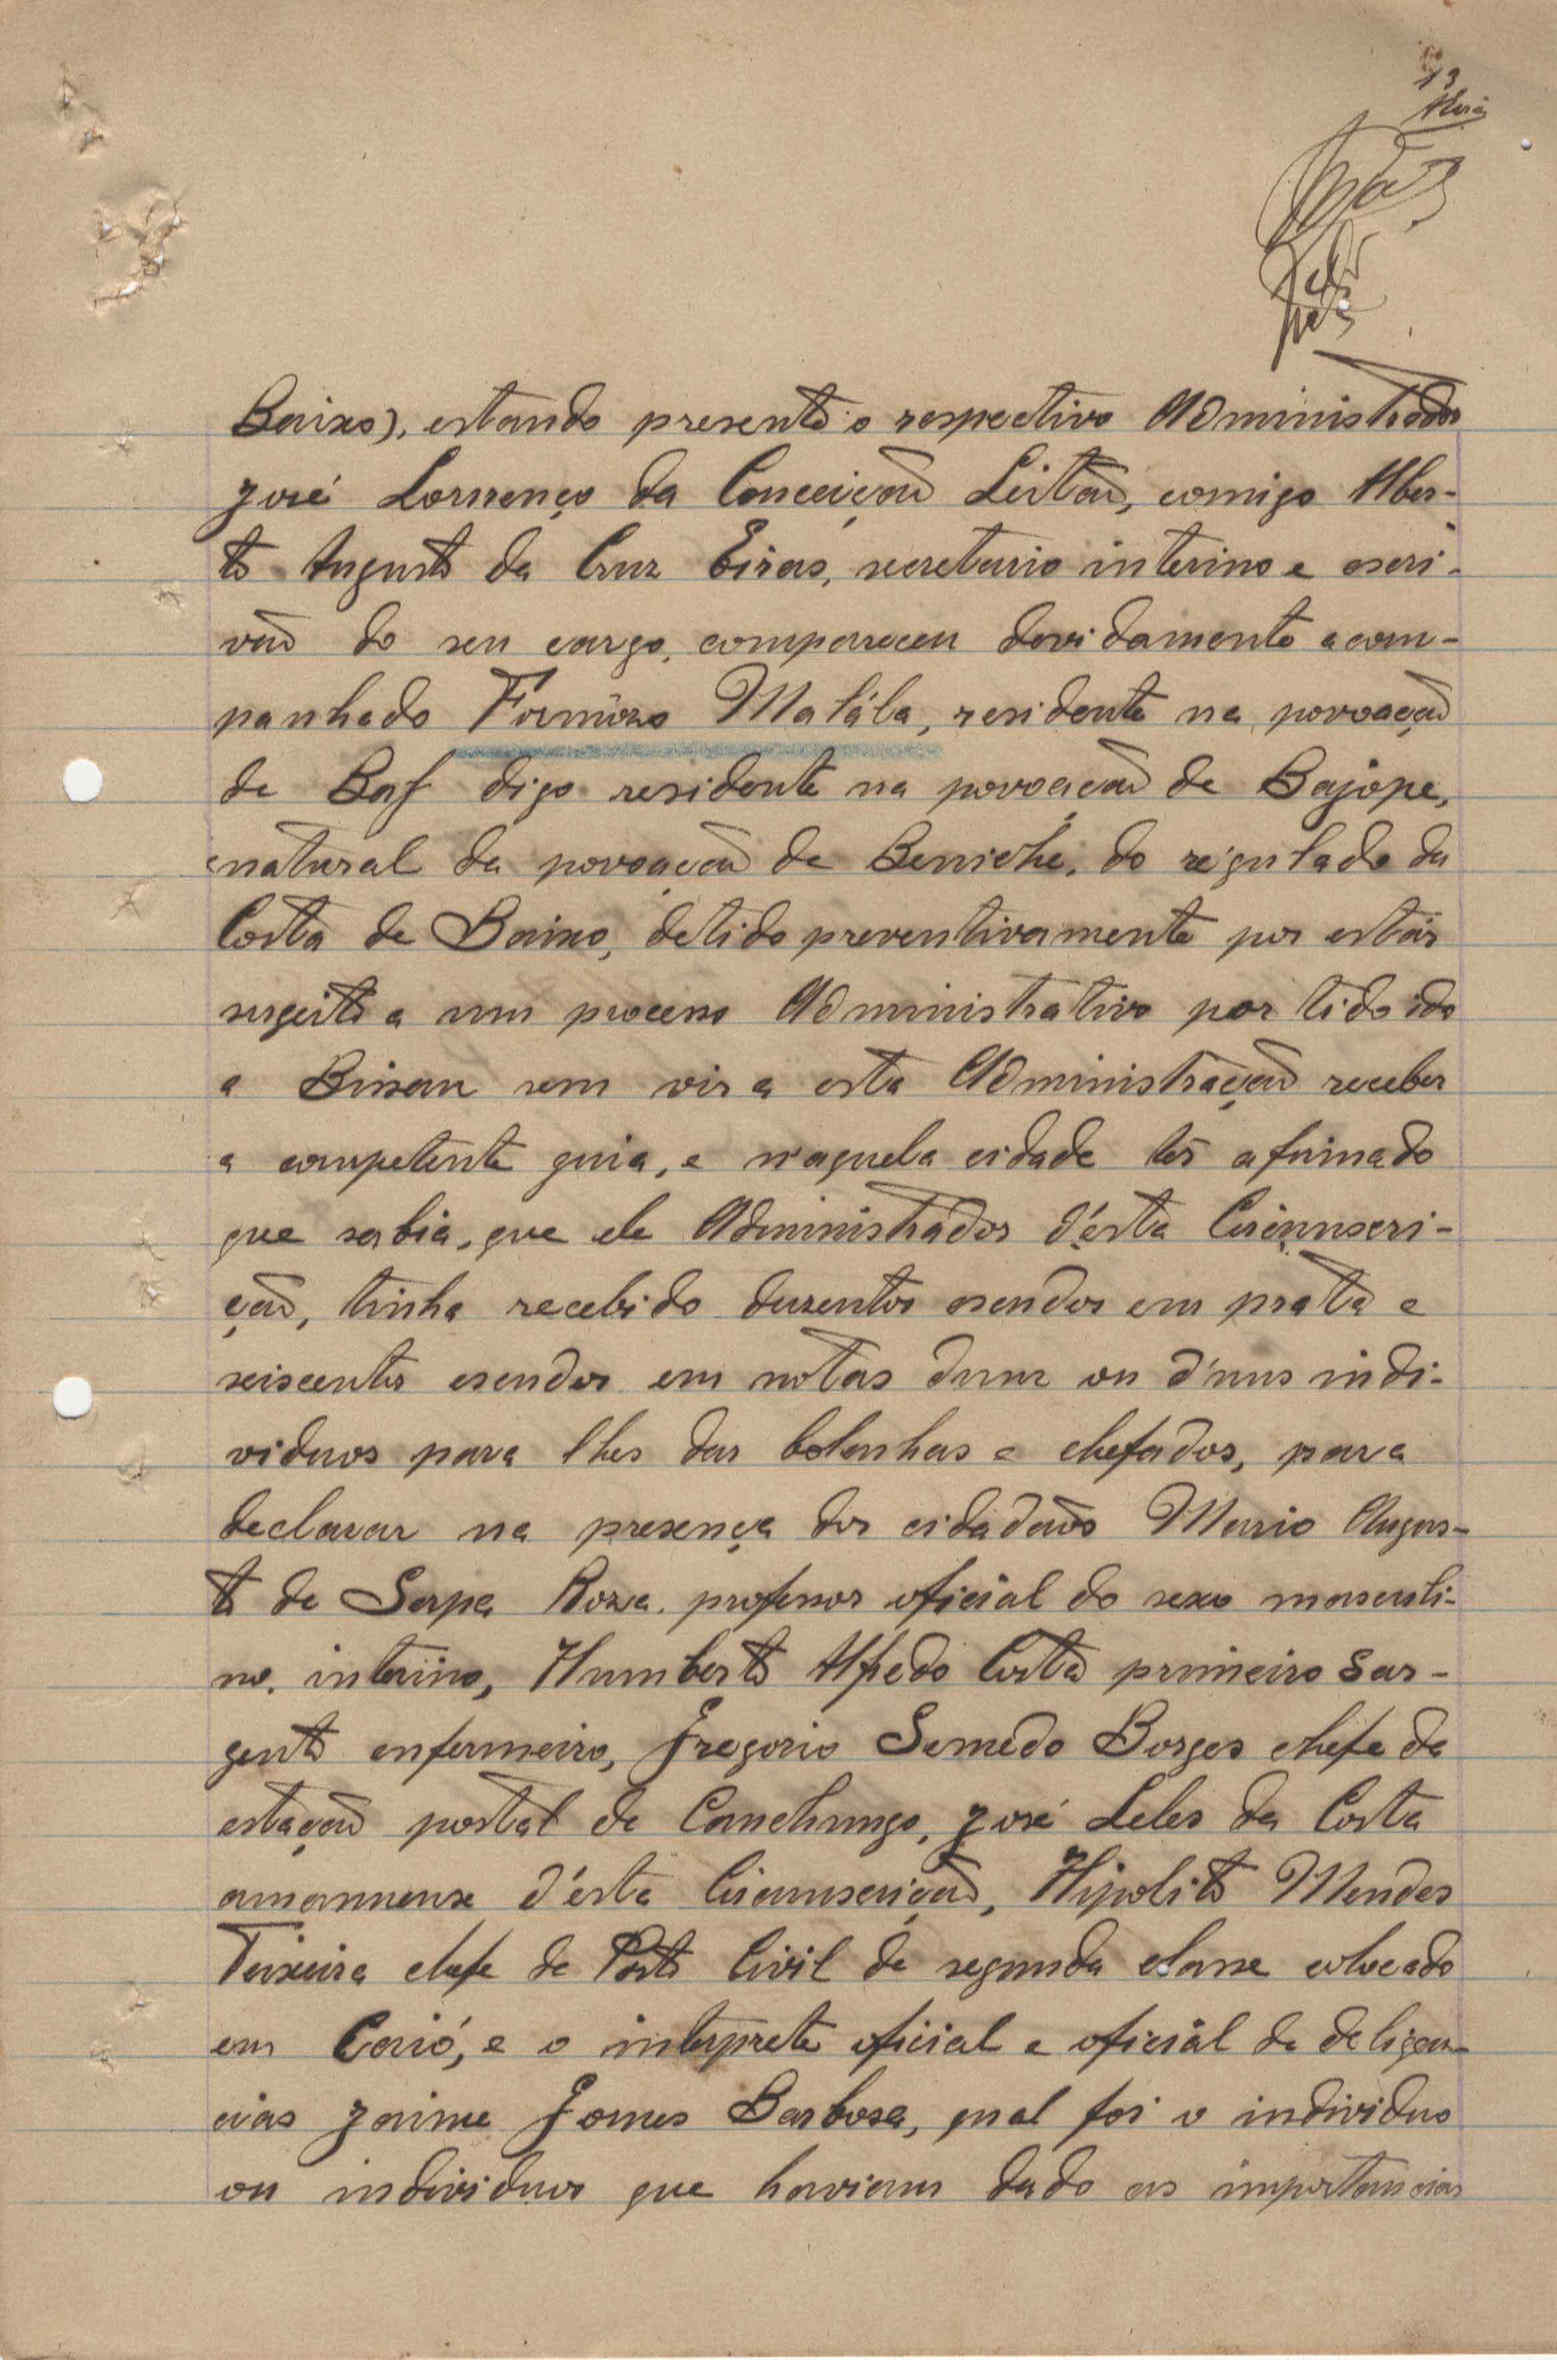 13
Baixo), estando presente o respectivo Administrador
José Lourenço da Conceição Leitão, comigo Alber-
to Augusto da Cruz Eiras, secretario interino e escri-
vão do seu cargo, compareceu devidamente acom-
panhado Formôzo Malála, residente na povoação
de Baj digo residente na povoação de Bajope,
natural da povoação de Beniche, do regulado da
Costa de Baixo, detido preventivamente por estár
sugeito a um processo Administrativo por tido ido
a Bissau sem vir a esta Administração receber
a competente guia, e n'aquela cidade ter afirmado
que sabia, que ele Administrador d'ésta Circunscri-
ção, tinha recebido duzentos escudos em prata e
seiscentos escudos em notas dum ou d'uns indi-
viduos para lhes dar bolanhas e chefados, para
declarar na presença dos cidadãos Mario Augus-
to de Serpa Roza, professor oficial do sexo masculi-
no, interino, Humberto Alfredo Costa primeiro sar-
gento enfermeiro, Gregorio Semedo Borges chefe da
estação postal de Canchungo, José Leles da Costa
amanuense d'ésta Circunscrição, Hipolito Mendes
Teixeira chefe de Posto Civil de segunda classe colocado
em Caió, e o interprete oficial e oficial de deligen-
cias Jaime Gomes Barbosa, qual foi o individuo
ou individuos que haviam dado as importancias